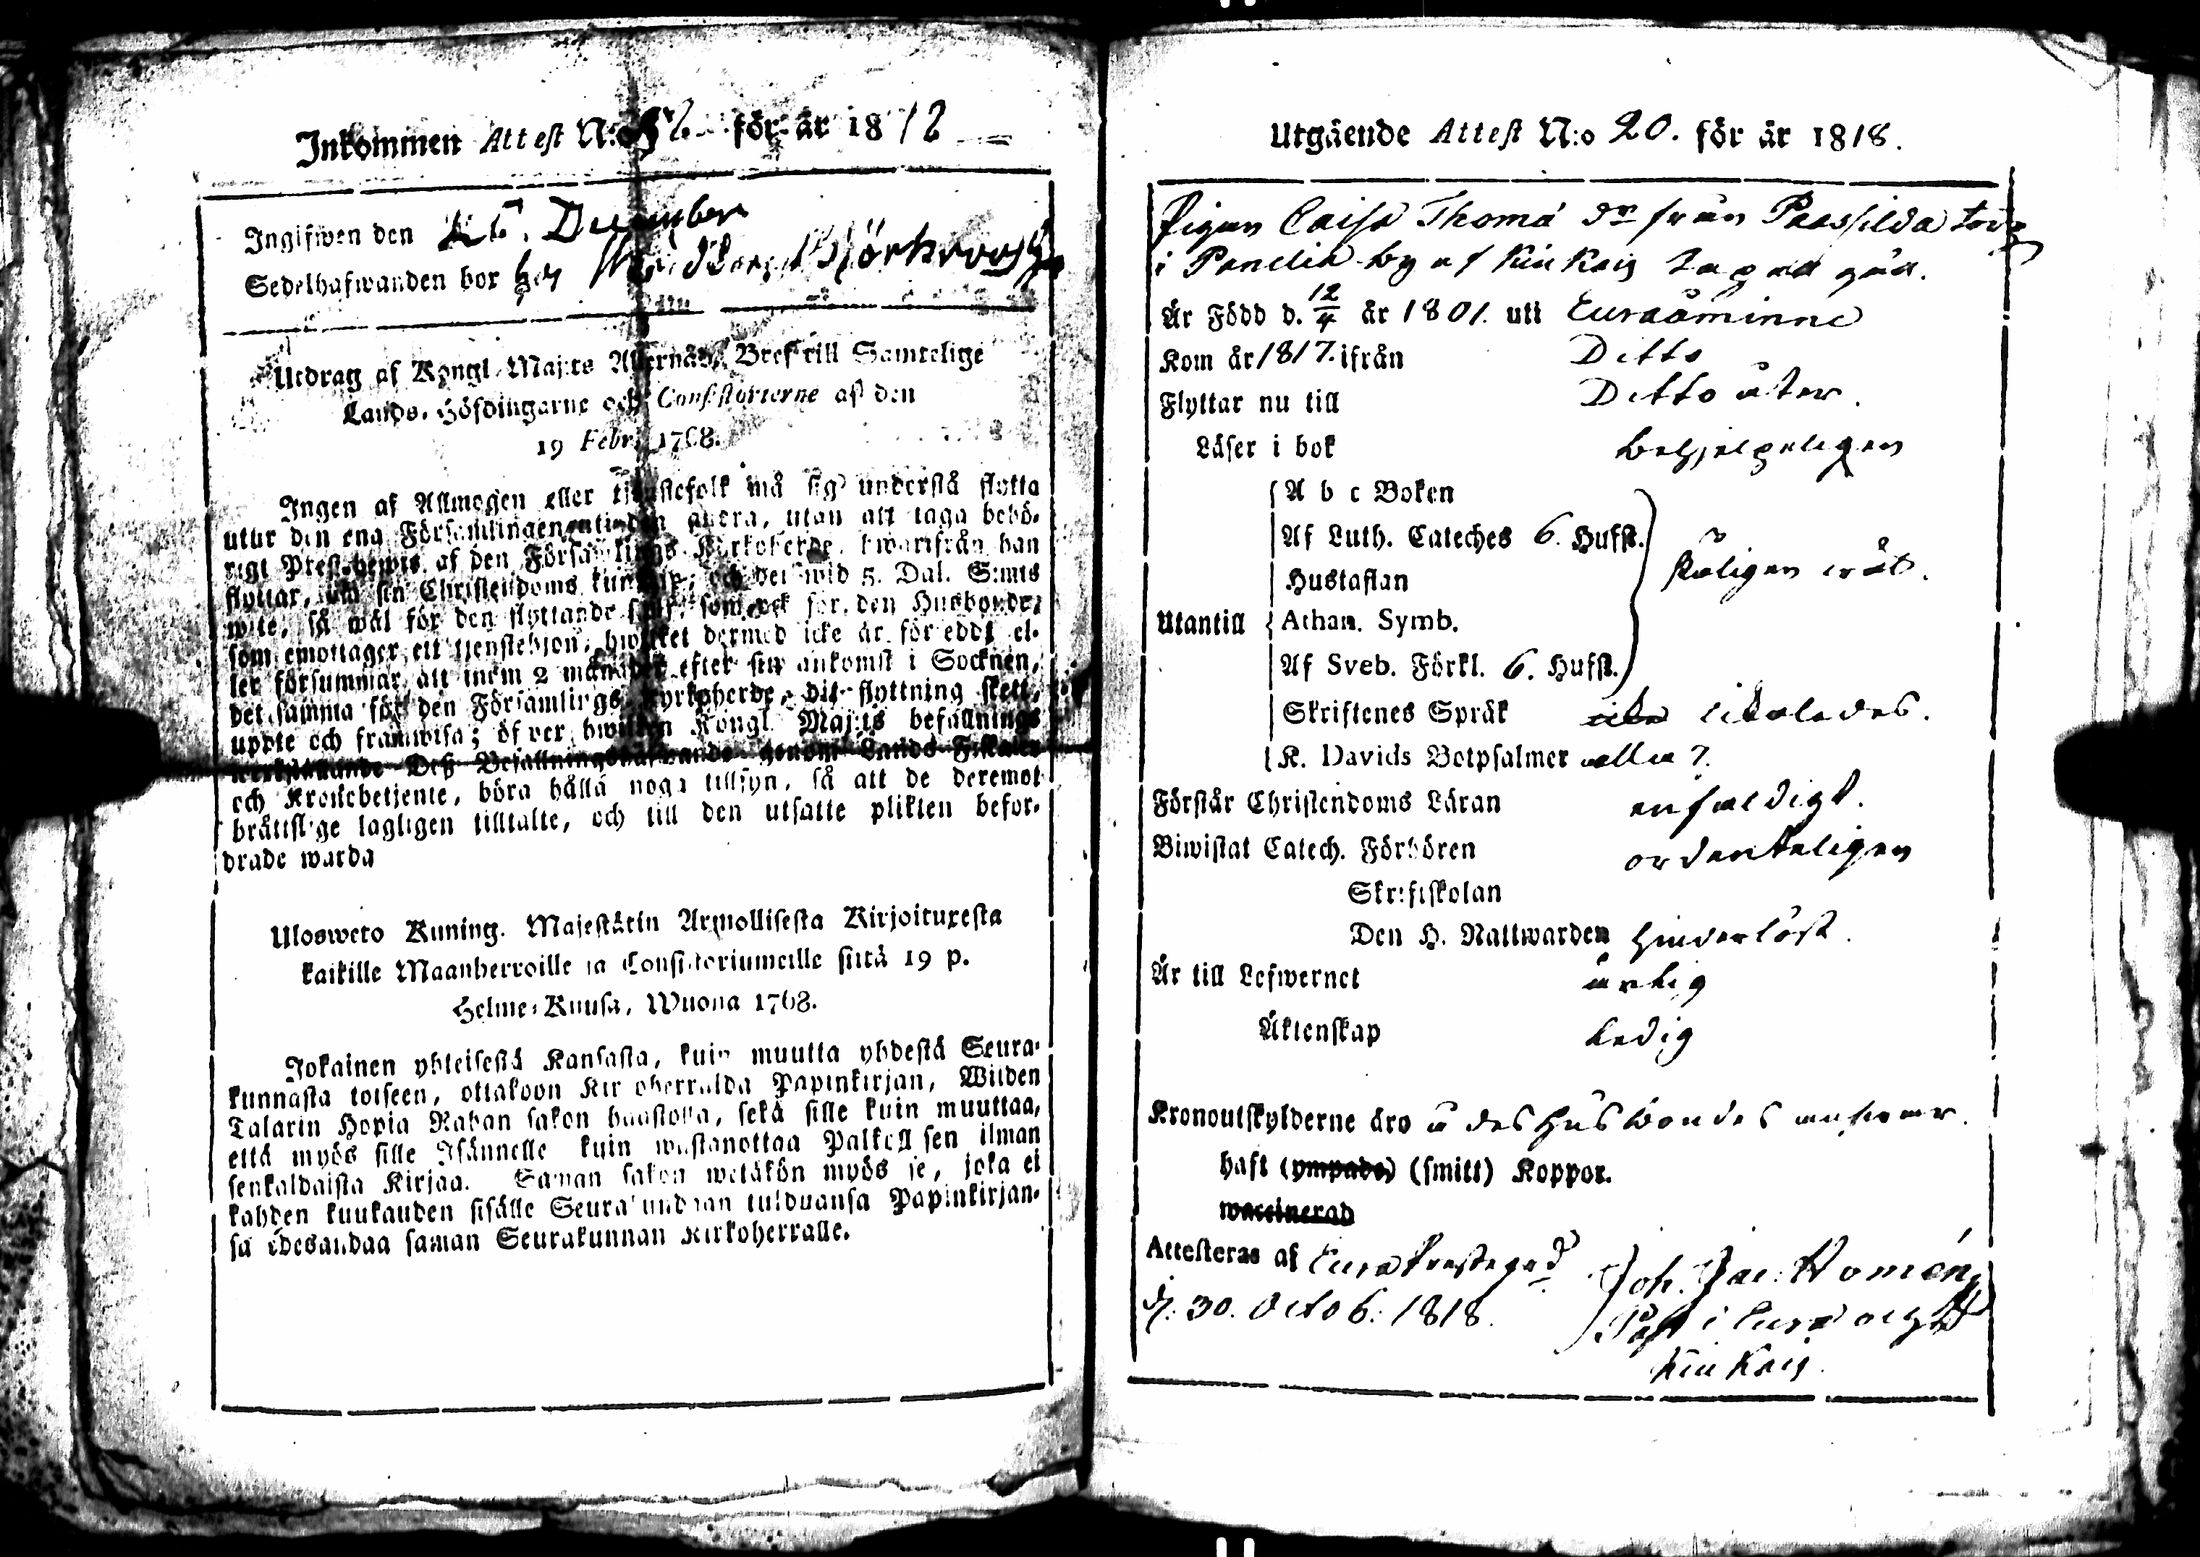 Inkommen Attest N:o för år 1818
Ingifwen den December
Sedelhafwanden bor hos
Utdrag af Kongl. Maj:ts Allernåd. Bref till Samtelige
Lands-Höfdingarne och Consistorierne af den
19 Febr. 1768.
Ingen af Allmogen eller tjenstefolk må sig understå flytta
utur den ena Församlingen uti den andra, utan att taga behö-
rigt Prestbewis af den Församlings Kyrkoherde, hwarifrån han
flyttar, om sin Christendoms kunskap; och det wid 5. Dal. S:mts
wite, så wäl för den flyttande sjelf, som ock för den Husbonde,
som emottager ett tjenstehjon, hwilket dermed icke är försedt el-
ler försummar att inom 2 månader efter sin ankomst i Socknen,
det samma för den Församlings Kyrkoherde, dit flyttning skett,
uppte och framwisa; öfwer hwilken Kongl. Maj:ts befallnings
werkställande Deß Befallningshafwande genom Lands Fiskaler
och Kronobetjente, böra hålla noga tillsyn, så att de deremot
bråttslige lagligen tilltalte, och till den utsatte plikten befor-
drade warda
Ulosweto Kuning. Majestätin Armollisesta Kirjoituxesta
kaikille Maanherroille ja Consistoriumeille siitä 19 p.
Helme-Kuusa, Wuona 1768.
Jokainen yhteisestä Kansasta, kuin muutta yhdestä Seura-
kunnasta toiseen, ottakoon Kirkoherralda Papinkirjan, Wiiden
Talarin Hopia Rahan sakon haastolla, sekä sille kuin muuttaa,
että myös sille Isännelle kuin wastanottaa Palkollisen ilman
senkaldaista Kirjaa. Saman sakon wetäkön myös se, joka ei
kahden kuukauden sisälle Seurakundaan tulduansa Papinkirjan-
sa edesandaa saman Seurakunnan Kirkoherralle.
Utgående Attest N:o 20. för år 1818.
Pigan Caisa Thomä dr från Paassilda torp
i Panelia by af Kiukais Capell går.
Är Född d. 12/4 år 1801. uti Euraåminne
Kom år 1817. ifrån Ditto
Flyttar nu till Ditto åter.
Läser i bok behjelpeligen
A b c Boken
Af Luth. Cateches 6. Hufst.
Hustaflan skäligen wäl.
Utantill Athan. Symb.
Af Sveb. Förkl. 6. Hufst.
Skriftenes Språk likaledes.
K. Davids Botpsalmer alla 7.
Förstår Christendoms Läran enfaldigt.
Biwistat Catech. Förhören ordenteligen
Skriftskolan
Den H. Nattwarden hinderlöst.
Är till Lefwernet ärlig
Äktenskap Ledig
Kronoutskylderne äro å des husbondes answar.
haft (ympade) (smitt) Koppor.
waccinerad
Attesteras af Eura Prestegård Joh. Jac.
d. 30. Octob. 1818. i Eura och
Kiukais.